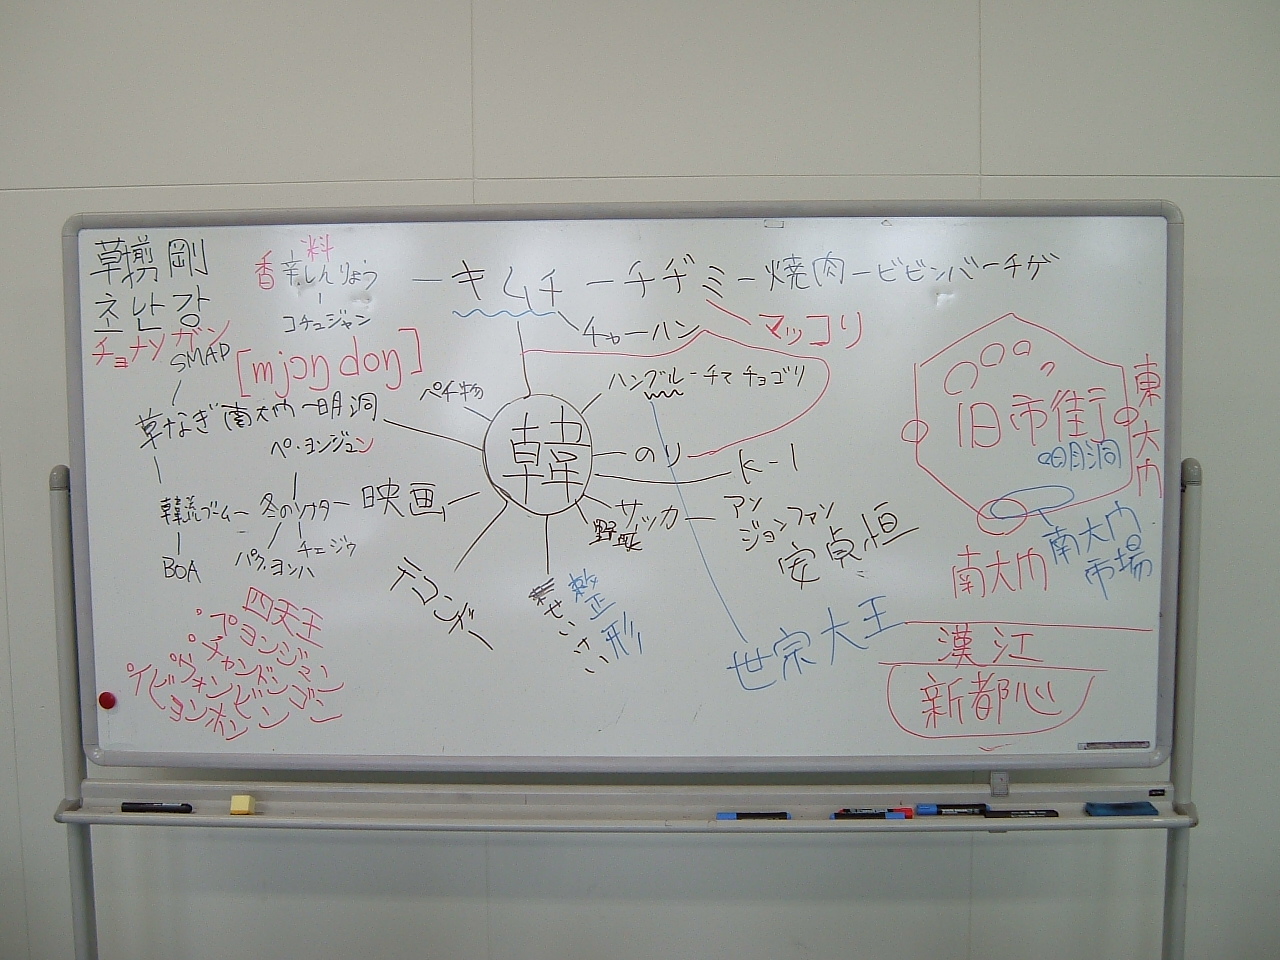 草彅剛
초난강
チョナンガン
SMAP
香辛料
しんりょう
コチュジャン
キムチ
チヂミ
焼肉
ビビンバ
チゲ
チャーハン
マッコリ
[mjɔŋ doŋ]
ペチ物
ハングル
チマチョゴリ
草なぎ
南大门
明洞
韓
のり
K-1
ペ・ヨンジュン
映画
冬のソナタ
韓流ブーム
BOA
パク・ヨンハ
チェジウ
サッカー
アン
ジョンファン
安貞恒
野球
テコンドー
せいけい
整形
世宗大王
四天王
旧市街
明洞
東大门
南大门
南大门
市場
漢江
新都心